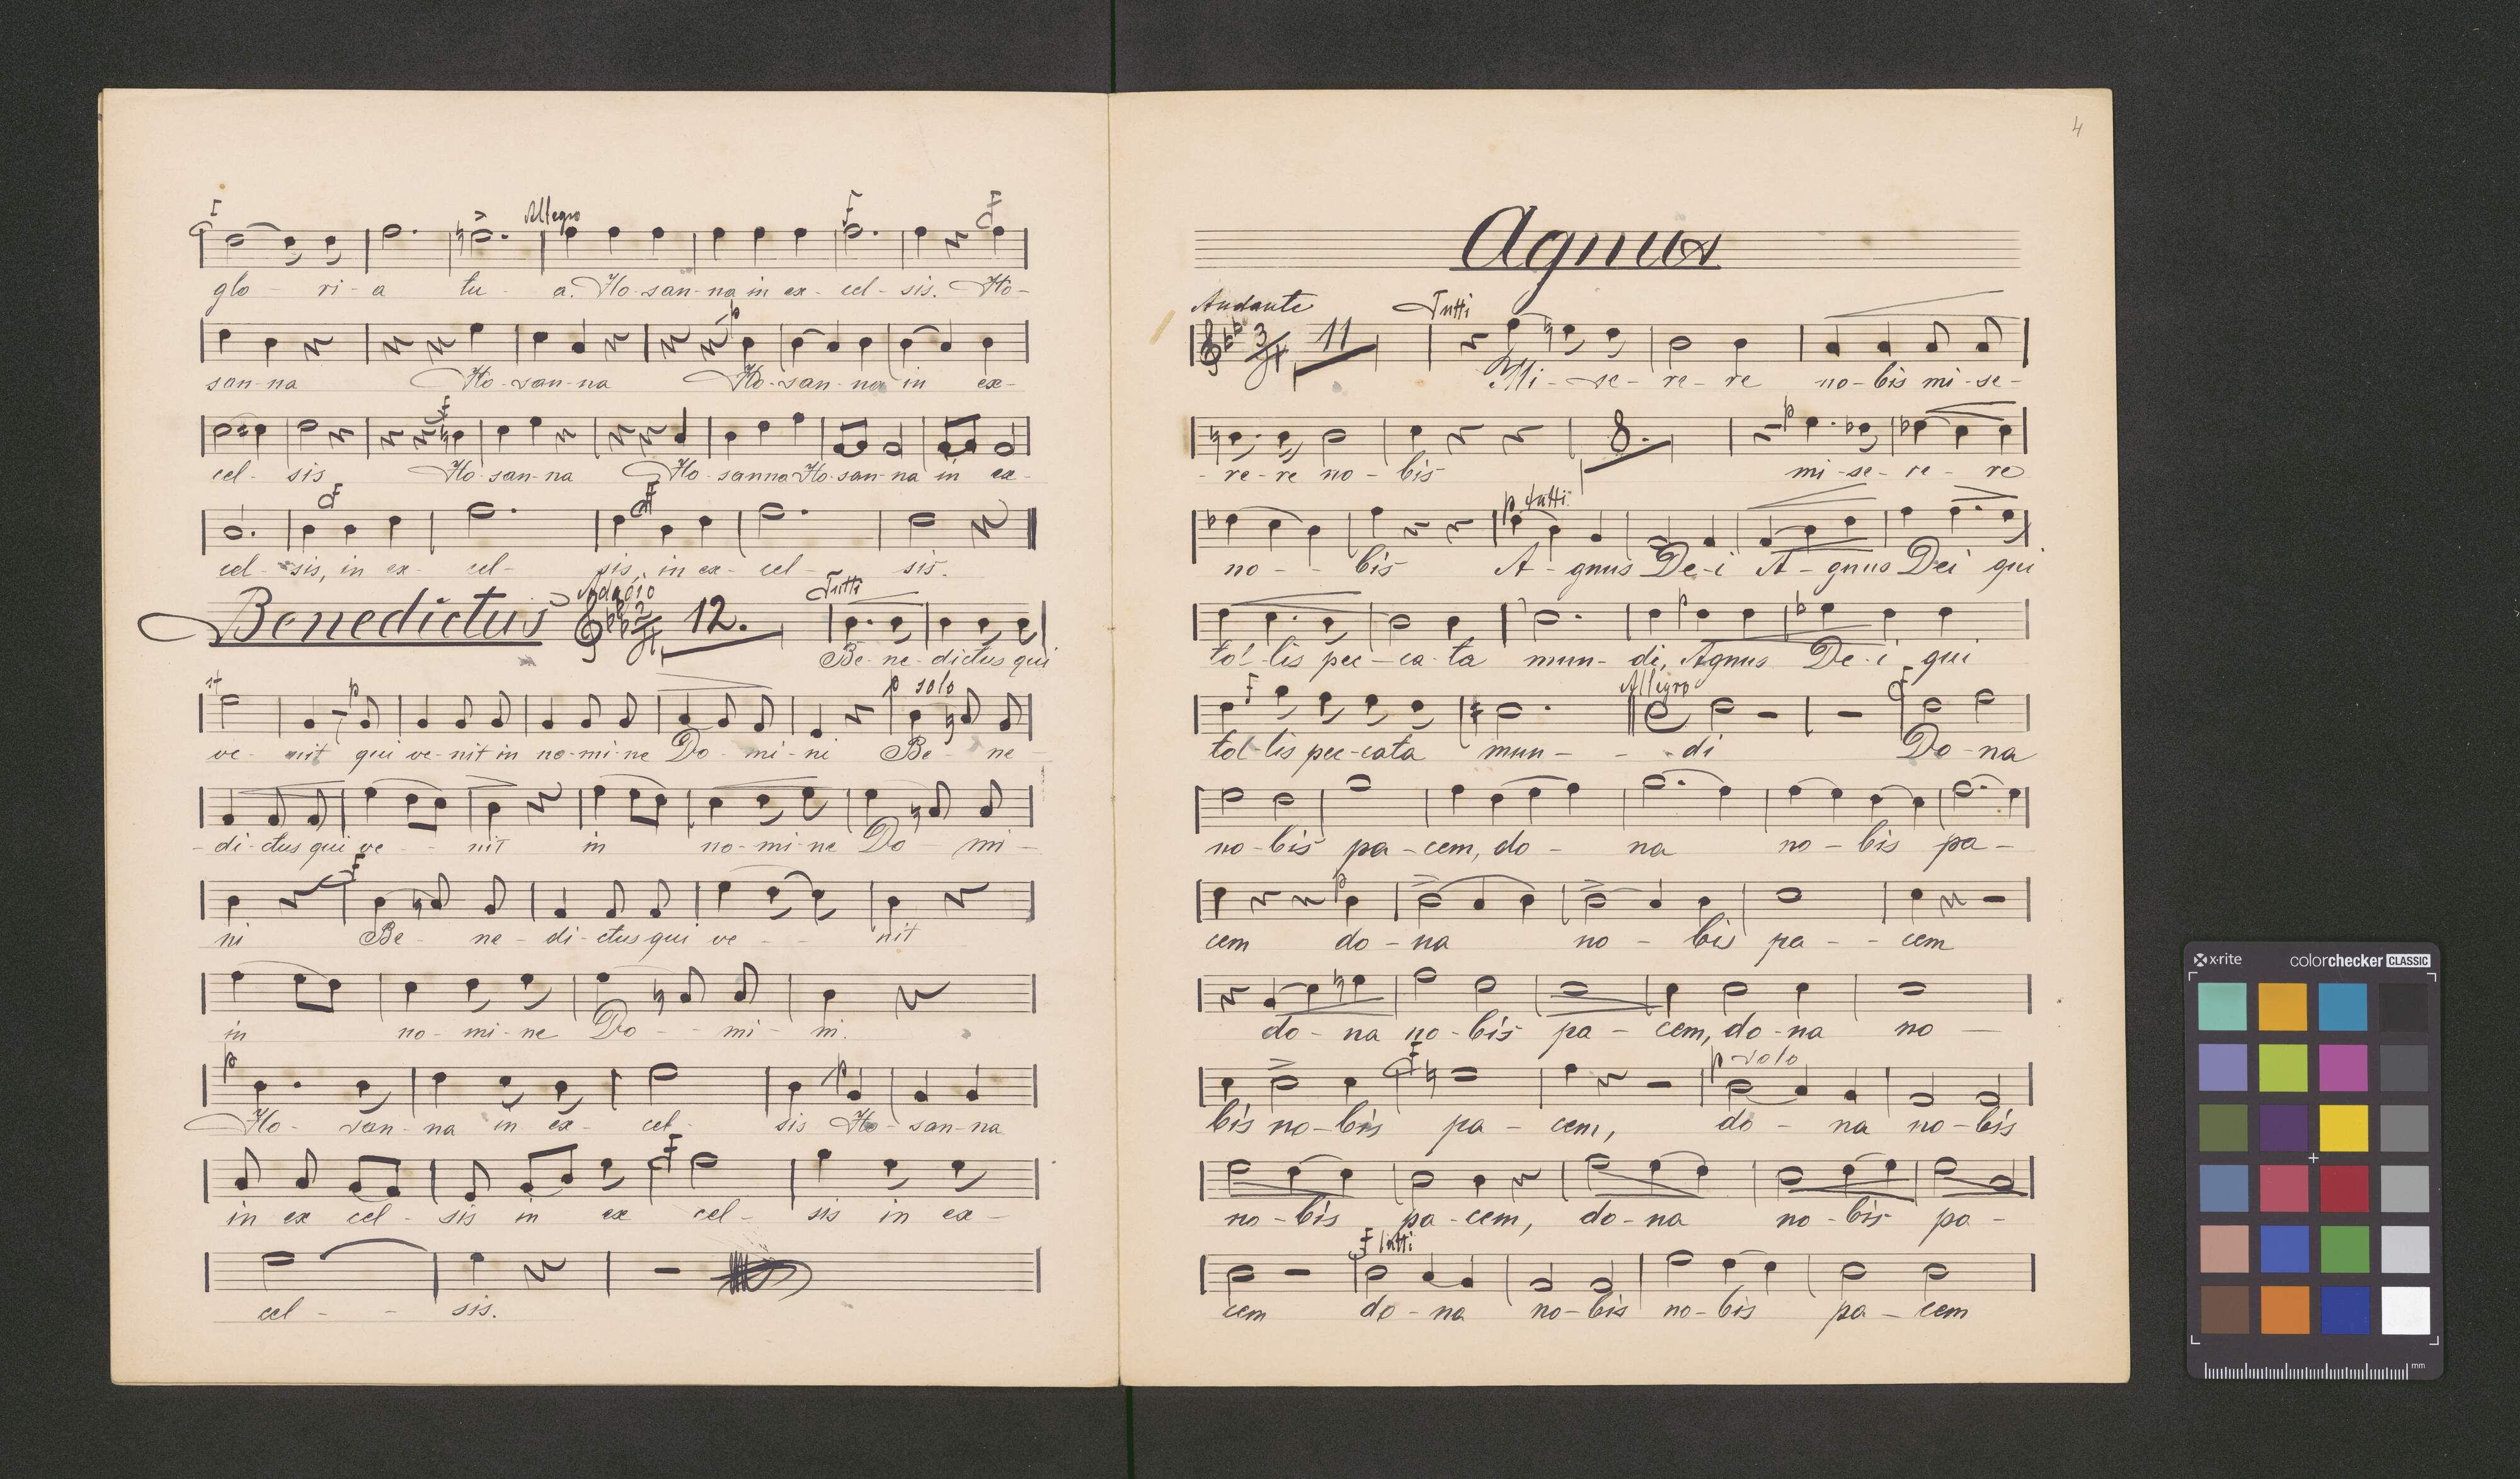 F Allegro F F
glo - ri - a tu - a. Ho - san - na in ex - cel - sis. Ho -
p
san - na Ho - san - na Ho - san - na in ex -
F
cel - sis Ho - san - na Ho - sanna Ho - san - na in ex -
F F
cel - sis, in ex - cel - sis, in ex - cel - sis.
Benedictus Adagio 2/4 12. Tutti
Be - ne - dictus qui
p p solo
ve - nit qui ve - nit in no - mi - ne Do - mi - ni Be - ne -
- di - ctus qui ve - - nit in no - mi - ne Do - mi -
F
ni Be - ne - di - ctus qui ve - - nit
in no - mi - ne Do - - mi - ni.
p p
Ho - san - na in ex - cel - sis Ho - san - na
F
in ex cel - sis in ex cel - sis in ex -
cel - - sis.
4
Agnus
Andante Tutti
3/4 11
Mi - se - re - re no - bis mi - se -
8. p
- re - re no - bis mi - se - re - re
p tutti
no - - bis A - gnus De - i A - gnus Dei qui
p
tol - lis pec - ca - ta mun - di, Agnus De - i qui
F Allegro F
tol - lis pec - cata mun - - di Do - na
no - bis pa - cem, do - na no - bis pa -
p
cem do - na no - bis pa - - cem
do - na no - bis pa - cem, do - na no -
F p solo
bis no - bis pa - cem, do - na no - bis
no - bis pa - cem, do - na no - bis pa -
F tutti
cem do - na no - bis no - bis pa - cem
x-rite colorchecker CLASSIC
mm